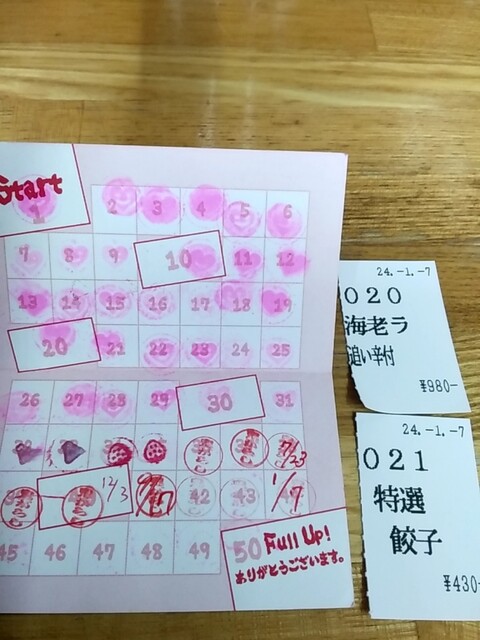 Start
1 2 3 4 5 6
7 8 9 10 11 12
13 14 15 16 17 18 19
20 21 22 23 24 25
26 27 28 29 30 31
7/23
12/3 42 43 1/7
45 46 47 48 49 50 Full Up!
ありがとうございます。
24.-1.-7
020
海老ラ
追い辛付
¥980-
24.-1.-7
021
特選
餃子
¥430-